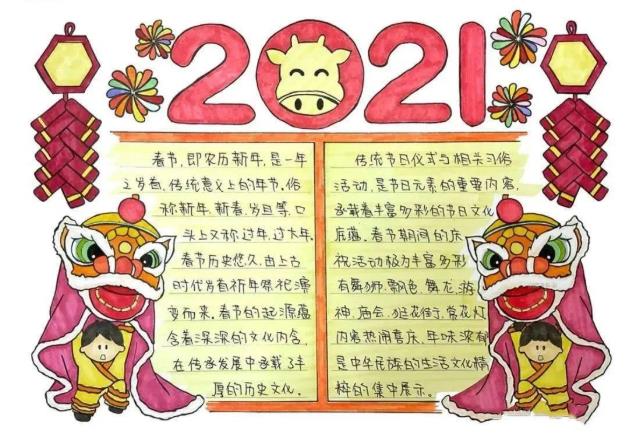 2021
春节,即农历新年,是一年
之岁首、传统意义上的年节。俗
称新年、新春、岁旦等,口
头上又称过年、过大年。
春节历史悠久,由上古
时代岁首祈年祭祀演
变而来。春节的起源蕴
含着深深的文化内含,
在传承发展中承载了丰
厚的历史文化。
传统节日仪式与相关习俗
活动,是节日元素的重要内容,
承载着丰富多彩的节日文化
底蕴。春节期间的庆
祝活动极为丰富多彩
有舞狮、飘色、舞龙、游
神、庙会、逛花街、赏花灯
内容热闹喜庆、年味浓郁
是中华民族的生活文化精
粹的集中展示。